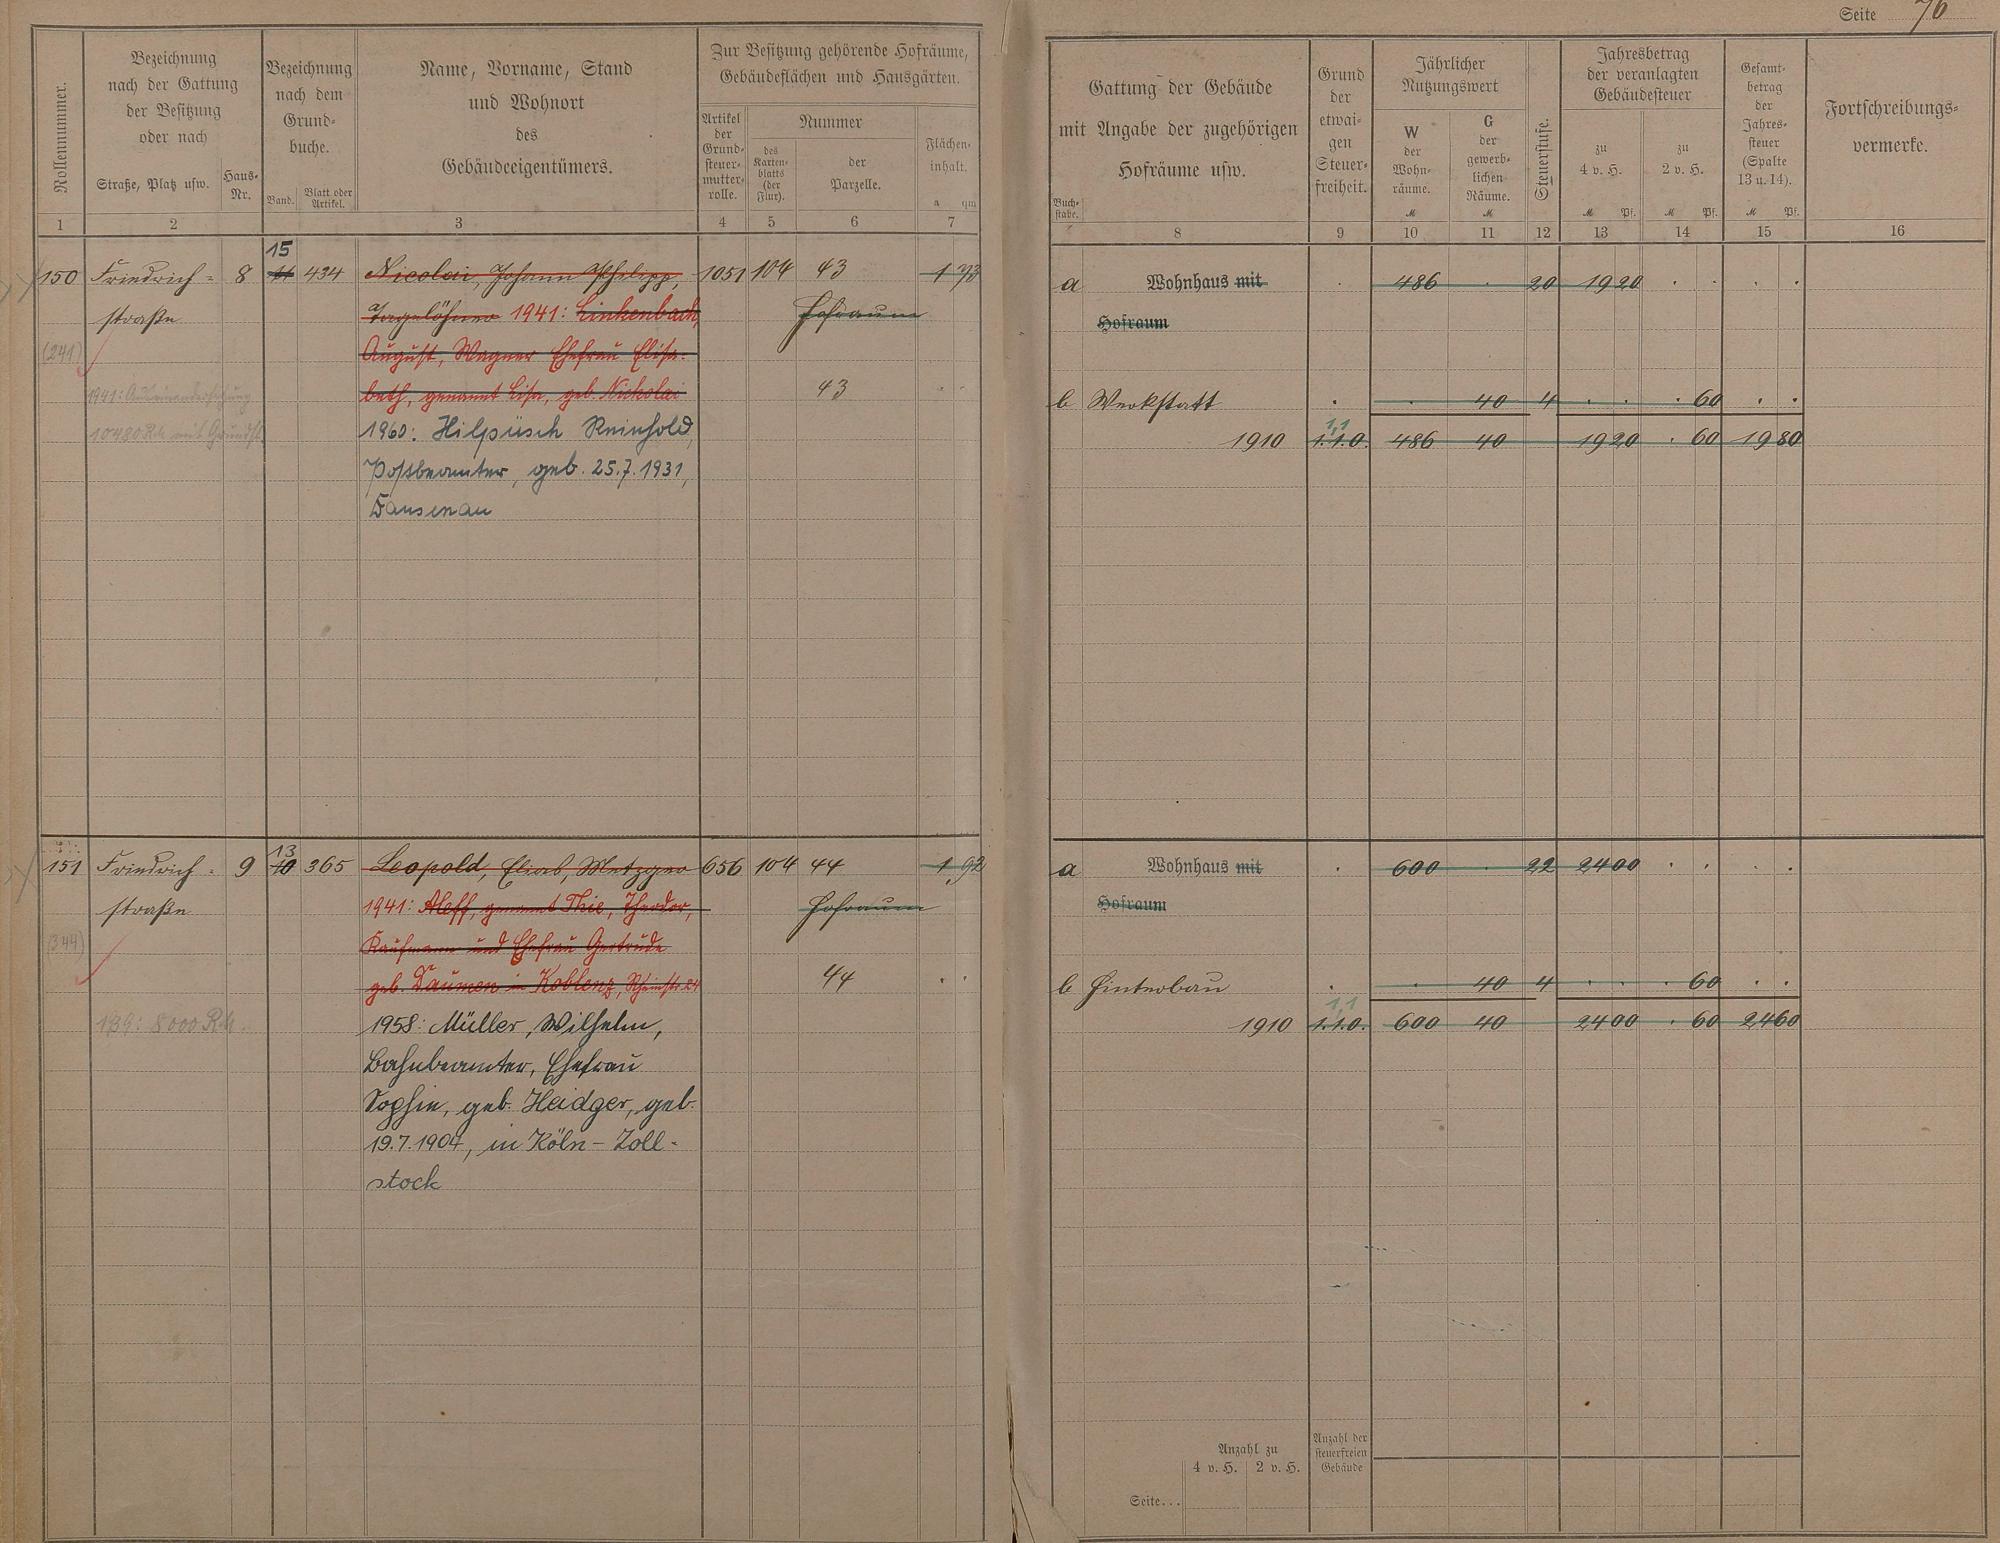 Seite 76
Rollennummer.
Bezeichnung
nach der Gattung
der Besitzung
oder nach
Straße, Platz usw.
Haus-
Nr.
Bezeichnung
nach dem
Grund-
buche.
Band.
Blatt oder
Artikel.
Name, Vorname, Stand
und Wohnort
des
Gebäudeeigentümers.
Zur Besitzung gehörende Hofräume,
Gebäudeflächen und Hausgärten.
Artikel
der
Grund-
steuer-
mutter-
rolle.
Nummer
des
Karten-
blatts
(der
Flur).
der
Parzelle.
Flächen-
inhalt.
a qm
1 2 3 4 5 6 7
Gattung der Gebäude
mit Angabe der zugehörigen
Hofräume usw.
Buch-
stabe.
Grund
der
etwai-
gen
Steuer-
freiheit.
Jährlicher
Nutzungswert
W
der
Wohn-
räume.
M
G
der
gewerb-
lichen
Räume.
M
Steuerstufe.
Jahresbetrag
der veranlagten
Gebäudesteuer
zu
4 v. H.
M Pf.
zu
2 v. H.
M Pf.
Gesamt-
betrag
der
Jahres-
steuer
(Spalte
13 u. 14).
M Pf.
Fortschreibungs-
vermerke.
8 9 10 11 12 13 14 15 16
15
150 Friedrich- 8 434 Nicolai, Johann Philipp, 1051 104 43 1 73
straße Tagelöhner 1941: Linkenbach, Hofraum
(241) August, Wagner Ehefrau Elisa-
1941: Auseinandersetzung beth, genannt Lisa, geb. Nickolai 43
10480 RM mit Grundst. 1960: Hilpüsch Reinhold,
Postbeamter, geb. 25.7.1931,
Dausenau
a Wohnhaus mit 486 20 19 20
Hofraum
b Werkstatt 40 4 60
1,1
1910 1.1.0. 486 40 19 20 60 19 80
13
151 Friedrich- 9 10 365 Leopold, Elias, Metzger 656 104 44 1 92
straße 1941: Aleff, genannt Thie, Theodor, Hofraum
(344) Kaufmann und Ehefrau Gertrude
geb. Daumen in Koblenz, Rheinstr. 24 44
8000 RM. 1958: Müller, Wilhelm,
Bahnbeamter, Ehefrau
Sophie, geb. Heidger, geb.
19.7.1904, in Köln-Zoll-
stock
a Wohnhaus mit 600 22 24 00
Hofraum
b Hinterbau 40 4 60
1,1
1910 1.1.0. 600 40 24 00 60 24 60
Anzahl zu
4 v. H. 2 v. H.
Anzahl der
steuerfreien
Gebäude
Seite...